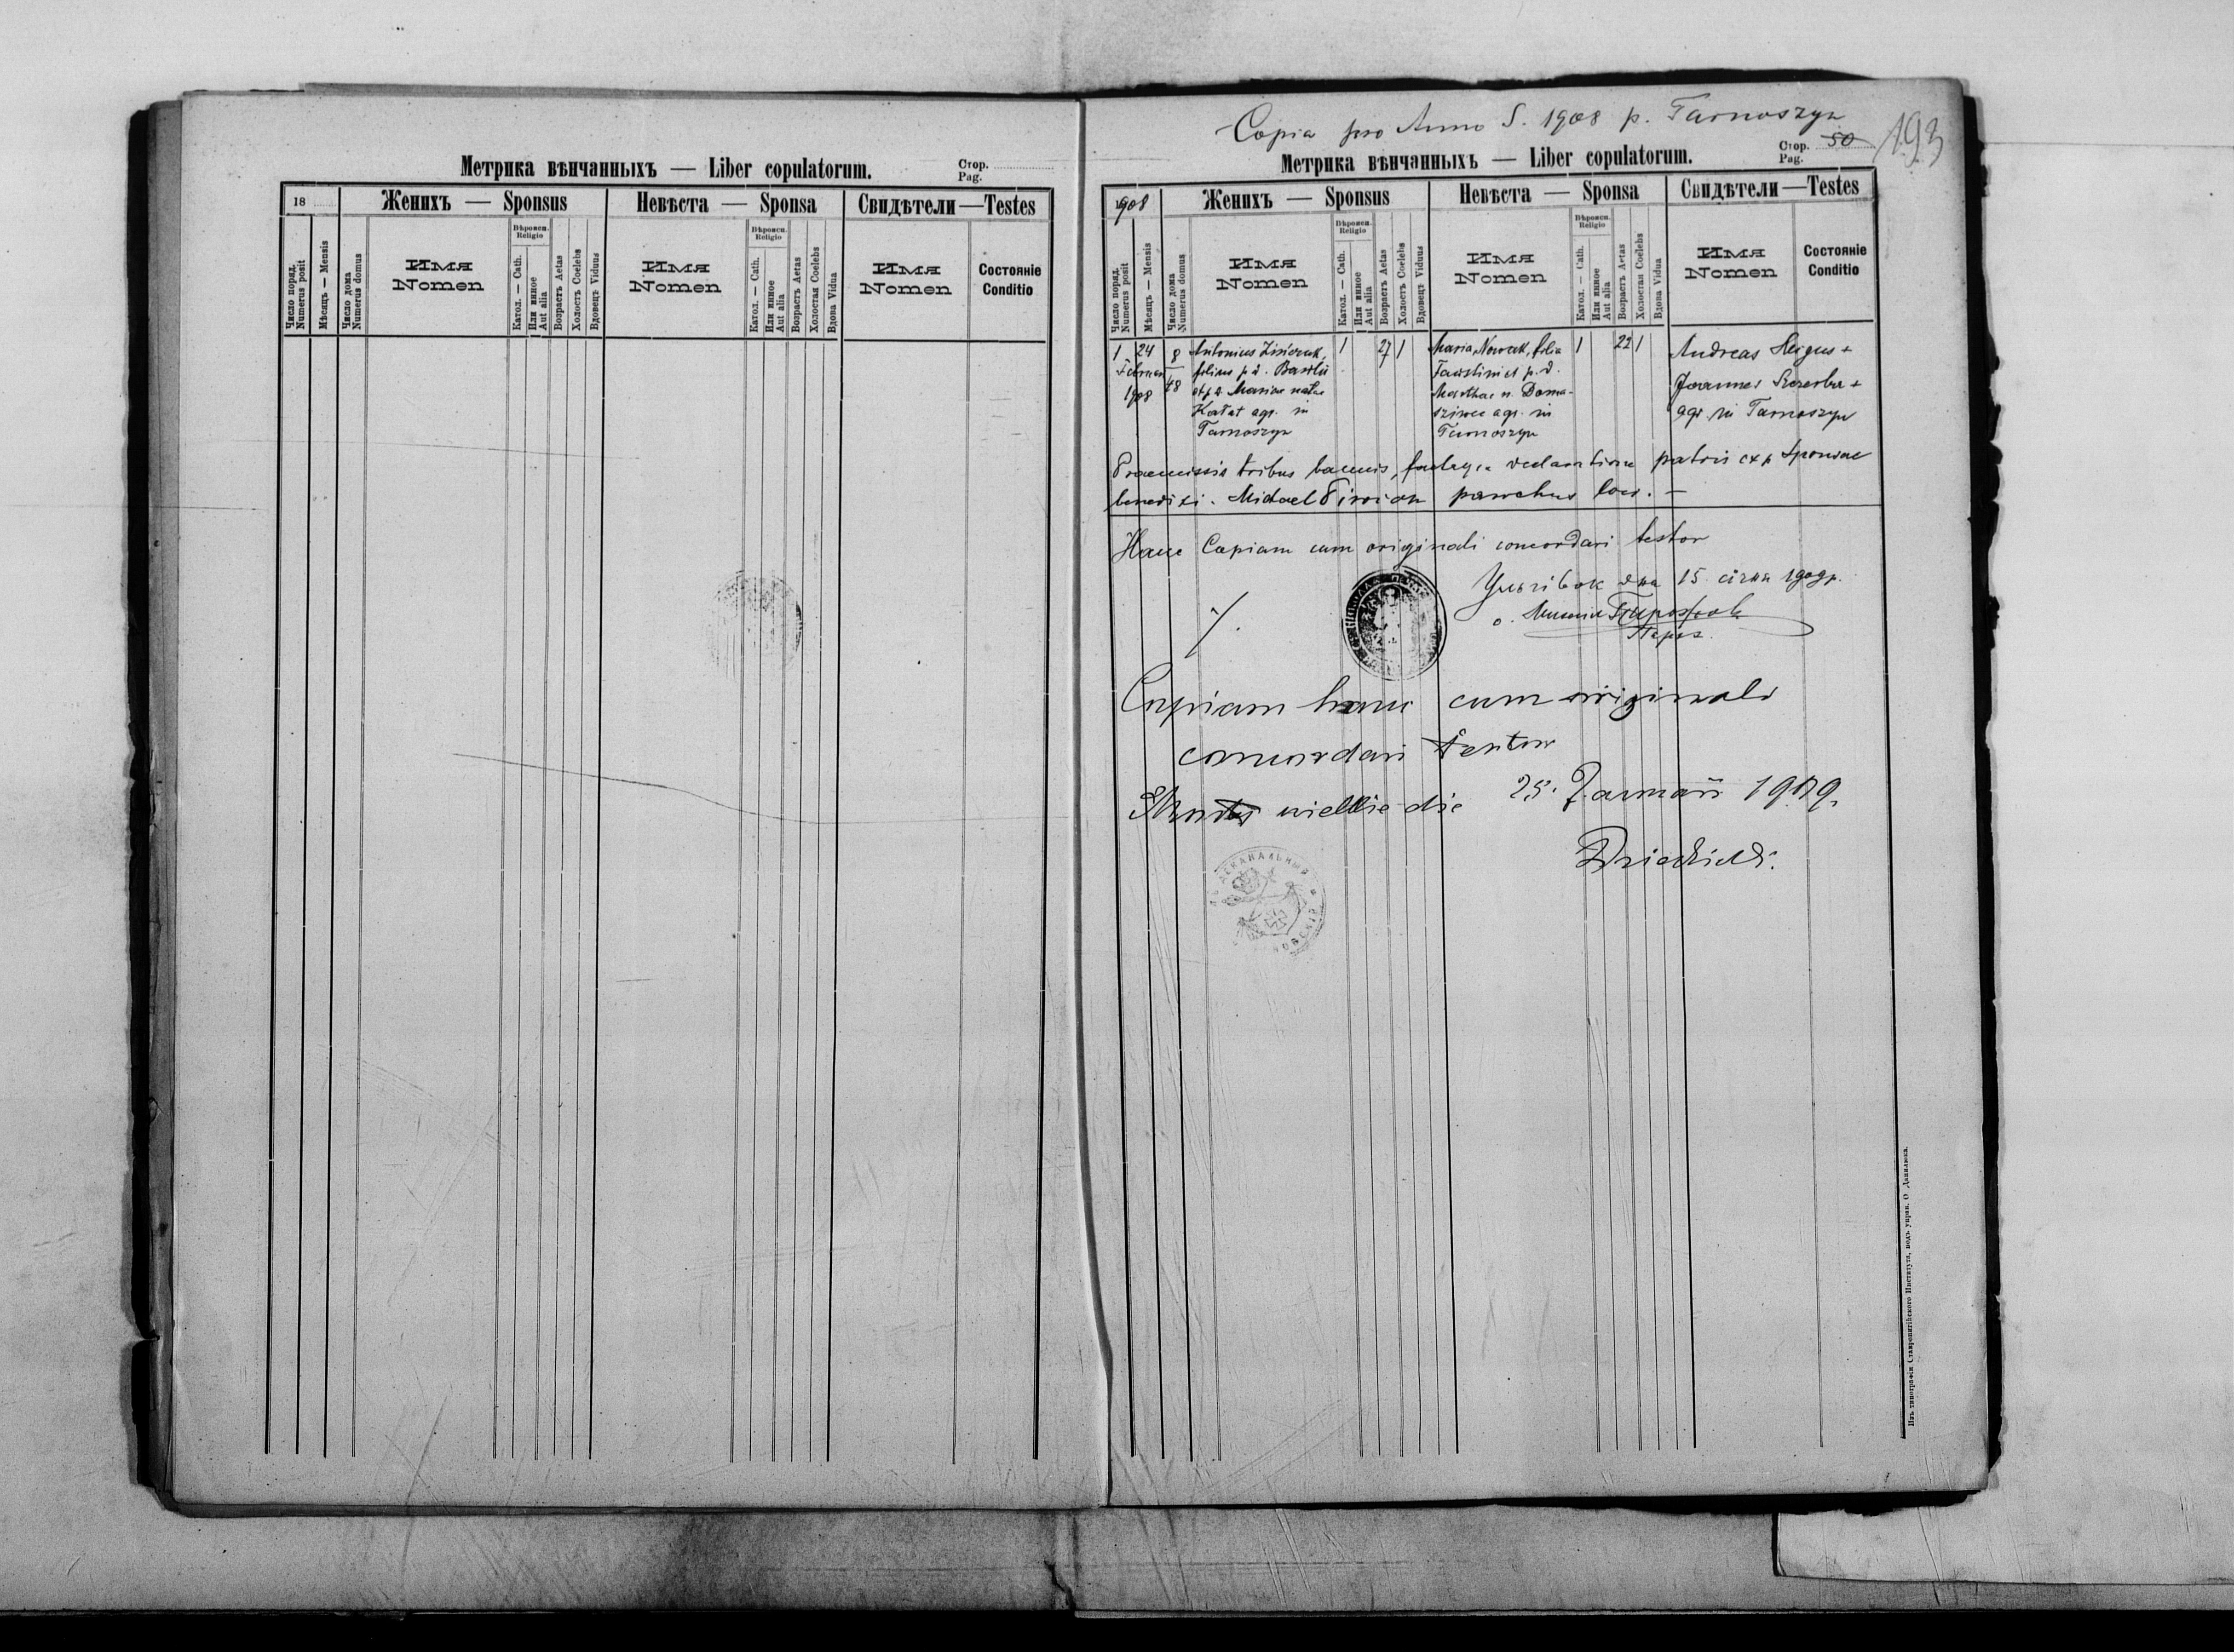 Метрика вѣнчанныхъ — Liber copulatorum.
Стор.
Pag.
18
Женихъ — Sponsus
Невѣста — Sponsa
Свидѣтели — Testes
Число поряд.
Numerus posit
Мѣсяцъ — Mensis
Число дома
Numerus domus
Имя
Nomen
Вѣроисп.
Religio
Катол. — Cath.
Или инное
Aut alia
Возрастъ Aetas
Холостъ Coelebs
Вдовецъ Viduus
Имя
Nomen
Вѣроисп.
Religio
Катол. — Cath.
Или инное
Aut alia
Возрастъ Aetas
Холостая Coelebs
Вдова Vidua
Имя
Nomen
Состояніе
Conditio
Copia pro Anno S. 1908 p. Tarnoszyn
193
Метрика вѣнчанныхъ — Liber copulatorum.
Стор.
Pag.
50
908
Женихъ — Sponsus
Невѣста — Sponsa
Свидѣтели — Testes
Число поряд.
Numerus posit
Мѣсяцъ — Mensis
Число дома
Numerus domus
Имя
Nomen
Вѣроисп.
Religio
Катол. — Cath.
Или инное
Aut alia
Возрастъ Aetas
Холостъ Coelebs
Вдовецъ Viduus
Имя
Nomen
Вѣроисп.
Religio
Катол. — Cath.
Или инное
Aut alia
Возрастъ Aetas
Холостая Coelebs
Вдова Vidua
Имя
Nomen
Состояніе
Conditio
1
24
Februar
1908
8
48
Antonius
filius p. d. Basilii
et p. d. Mariae natae
agr. in
Tarnoszyn
1
27
1
Maria Nowak, filia
Faustini et p. d.
Marthae n. Doma-
agr. in
Tarnoszyn
1
22
1
Andreas +
Joannes Szczerba +
agr. in Tarnoszyn
Praemissis tribus bannis, declaratione patris Sponsae
benedixi. Michael parochus loci. —
Hanc Copiam cum originali concordari testor
Угнівок дня 15 січня 1909 р.
о.
Парох.
Copiam hanc cum originali
concordari testor
die 25. Januarii 1909.
ДЕКАНАЛЬНЫЙ
Изъ типографіи Ставропигійского Института, подъ управ. О. Данилюка.